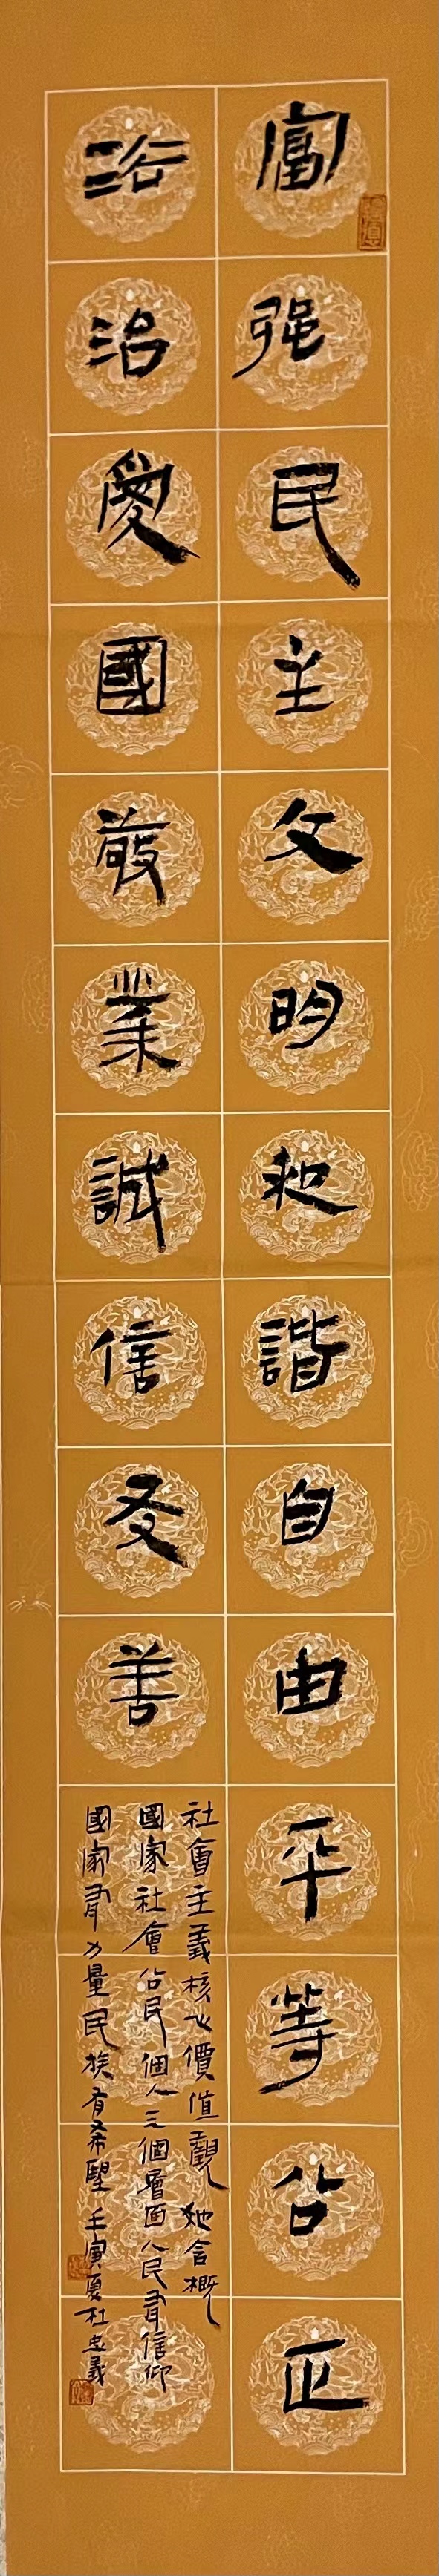 富强民主文明和諧自由平等公正
法治愛國敬業誠信友善
社會主義核心價值觀 她含概
國家社會公民個人三個層面人民有信仰
國家有力量民族有希望 壬寅夏杜忠義